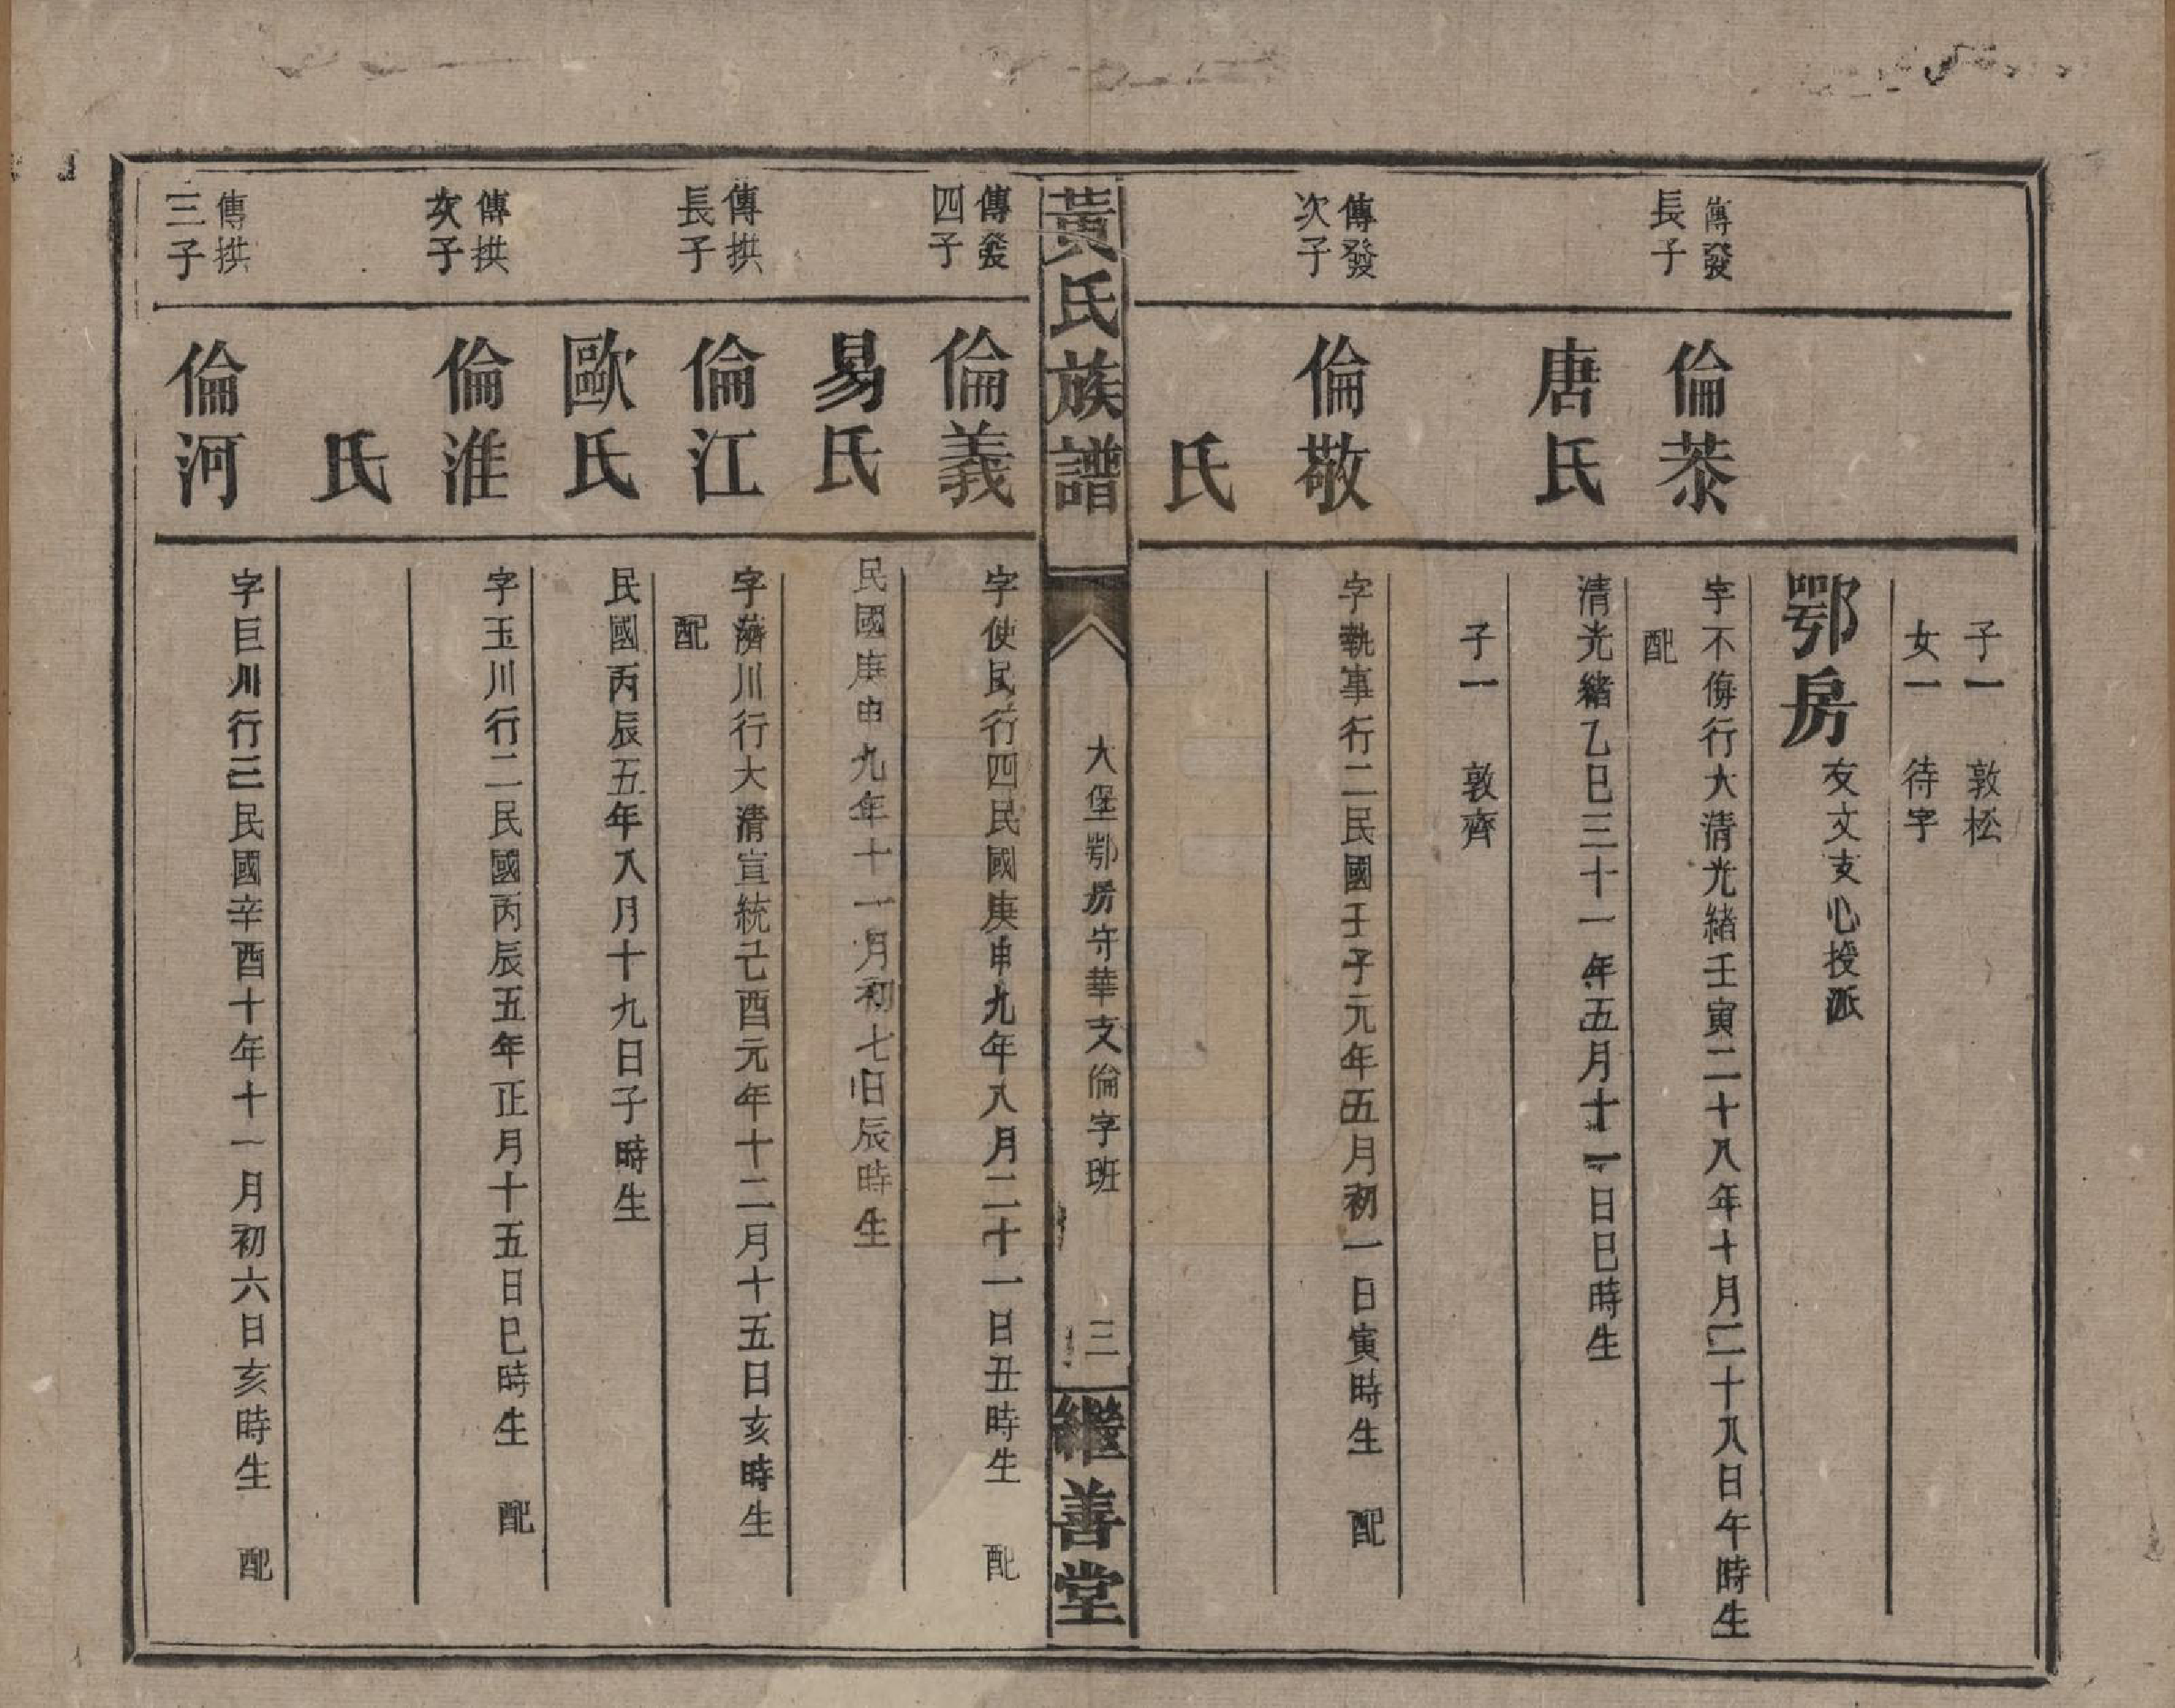 子一　敦松
女一　待字
鄂房　友文支心授派
傳發
長子
倫恭
字不侮行大清光緒壬寅二十八年十月二十八日午時生
配
唐氏
清光緒乙巳三十一年五月十一日巳時生
子一　敦齊
傳發
次子
倫敬
字執事行二民國壬子元年五月初一日寅時生　配
氏
黃氏族譜
大堡鄂房守華支倫字班
三
繼善堂
傳發
四子
倫義
字使民行四民國庚申九年八月二十一日丑時生　配
易氏
民國庚申九年十一月初七日辰時生
傳拱
長子
倫江
字濟川行大清宣統己酉元年十二月十五日亥時生
配
歐氏
民國丙辰五年八月十九日子時生
傳拱
次子
倫淮
字玉川行二民國丙辰五年正月十五日巳時生　配
氏
傳拱
三子
倫河
字巨川行三民國辛酉十年十一月初六日亥時生　配